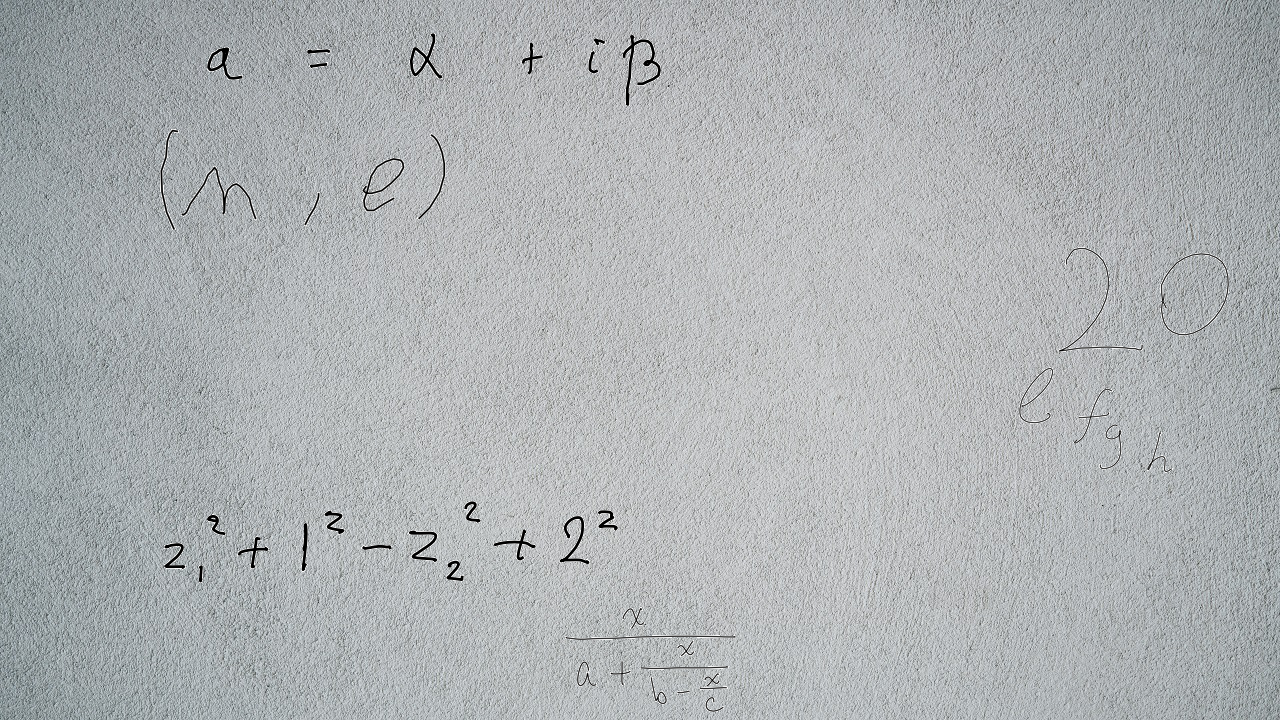 a = α + iβ
(n, e)
20
e_{f_{g_h}}
z_1^2 + 1^2 - z_2^2 + 2^2
\frac{x}{a + \frac{x}{b - \frac{x}{c}}}